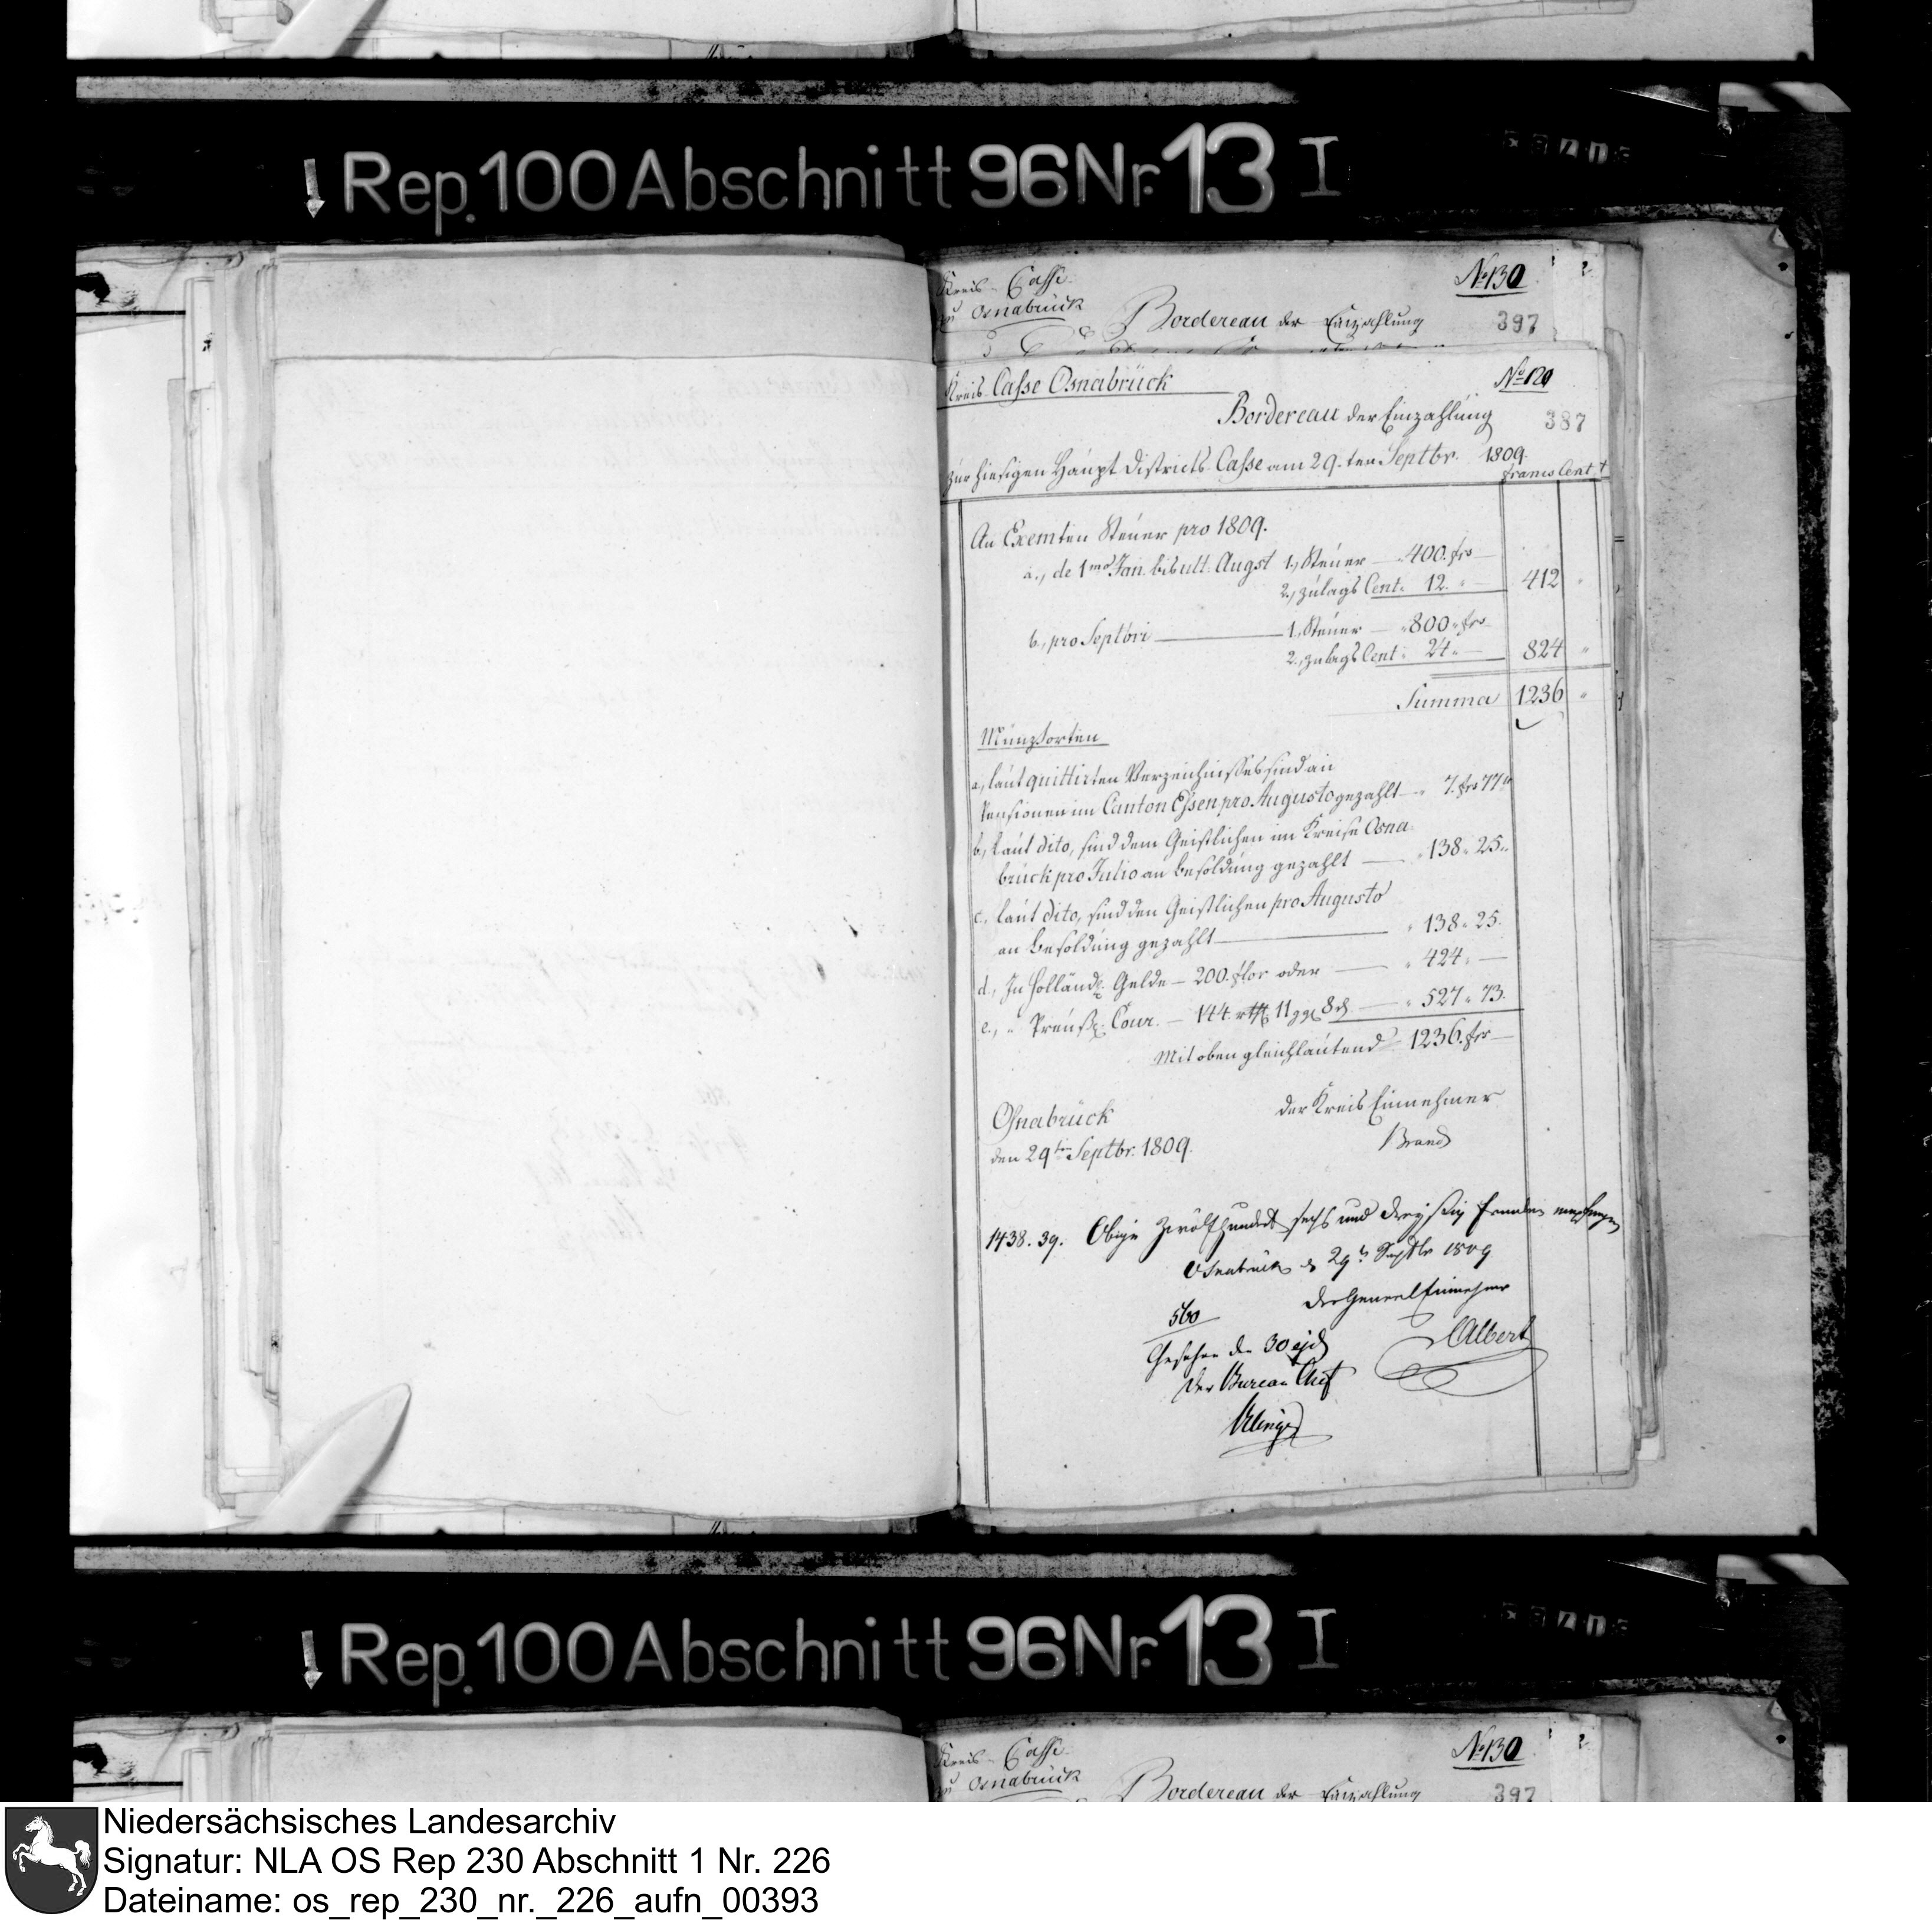 Rep. 100 Abschnitt 96 Nr. 13 I
Kreis Casse
zu Osnabrück
No 130
Bordereau der Einzahlung
397
Kreis-Casse Osnabrück
No 120
Bordereau der Einzahlung
387
zur hiesigen Haupt Districts-Casse am 29-ten Septbr. 1809.
francs Cent
An Exemten Steuer pro 1809.
a., de 1mo Jan. bis ult. Augst 1., Steuer — 400. frs —
2., zulags Cent. 12. " — 412 "
b., pro Septbri — 1., Steuer — " 800 " frs —
2., zulags Cent " 24 " — 824 "
Summa 1236 "
Münzsorten
a., laut quittirten Verzeichnisses sind an
Pensionen im Canton Essen pro Augusto gezahlt — " 7. frs 77
b., laut dito, sind dem Geistlichen im Kreise Osna-
brück pro Julio an Besoldung gezahlt — " 138 " 25 "
c., laut dito, sind den Geistlichen pro Augusto
an Besoldung gezahlt — " 138 " 25.
d., In Holländ. Gelde — 200. flor oder — " 424 " —
e., " Preuß. Cour. — 144. rthl 11 ggl 8 d. — " 527 " 73.
Mit oben gleichlautend 1236. frs —
Osnabrück
den 29ten Septbr. 1809.
der Kreis Einnehmer
Brand
1438. 39. Obige zwölfhundert sechs und dreyßig Franken empfangen
Osnabrück d 29t Septbr 1809
der General Einnehmer
Albert
560
Gesehen den 30 ejd
Der Bureau Chef
Rep. 100 Abschnitt 96 Nr. 13 I
Kreis Casse
zu Osnabrück
No 130
Bordereau der Einzahlung
397
Niedersächsisches Landesarchiv
Signatur: NLA OS Rep 230 Abschnitt 1 Nr. 226
Dateiname: os_rep_230_nr._226_aufn_00393